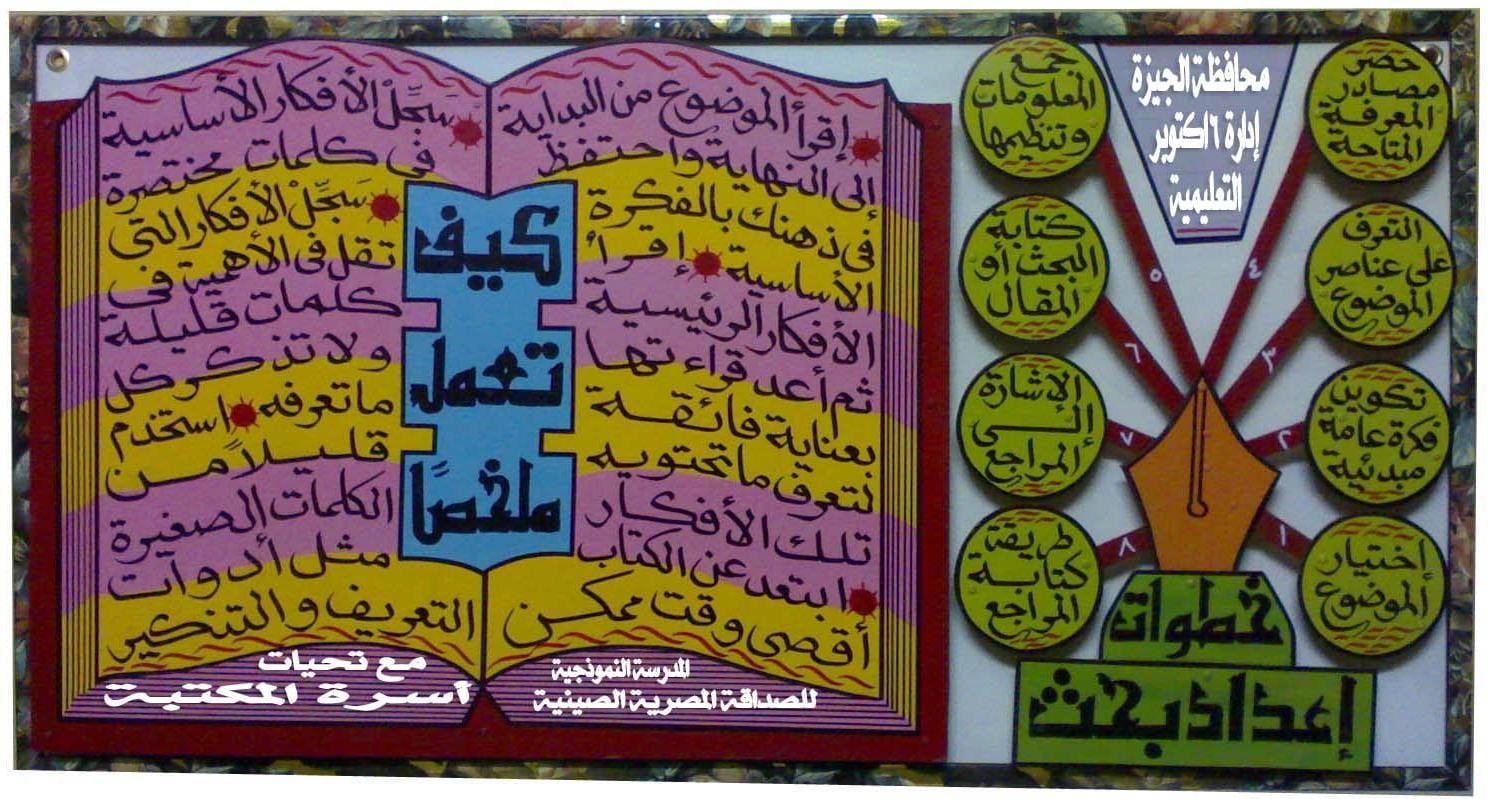 محافظة الجيزة
إدارة ٦ اكتوبر
التعليمية
حصر
مصادر
المعرفة
المتاحة
التعرف
على عناصر
الموضوع
تكوين
فكرة عامة
مبدئية
اختيار
الموضوع
جمع
المعلومات
وتنظيمها
كتابة
البحث أو
المقال
الإشارة
إلى
المراجع
طريقة
كتابة
المراجع
٥
٤
٦
٣
٧
٢
٨
١
خطوات
إعداد بحث
كيف
تعمل
ملخصًا
إقرأ الموضوع من البداية
إلى النهاية واحتفظ
فى ذهنك بالفكرة
الأساسية إقرأ
الأفكار الرئيسية
ثم أعد قراءتها
بعناية فائقة
لتعرف ما تحتويه
تلك الأفكار
ابتعد عن الكتاب
أقصى وقت ممكن
سَجِّلْ الأفكار الأساسية
فى كلمات مختصرة
سَجِّلْ الأفكار التى
تقل فى الأهمية فى
كلمات قليلة
ولا تذكر كل
ما تعرفه استخدم
قليلاً من
الكلمات الصغيرة
مثل أدوات
التعريف والتنكير
المدرسة النموذجية
للصداقة المصرية الصينية
مع تحيات
أسرة المكتبة